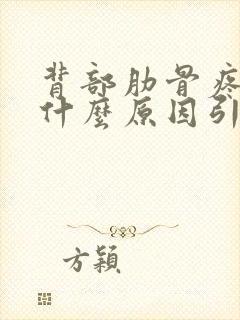 背部肋骨疼
什麼原因引
方穎